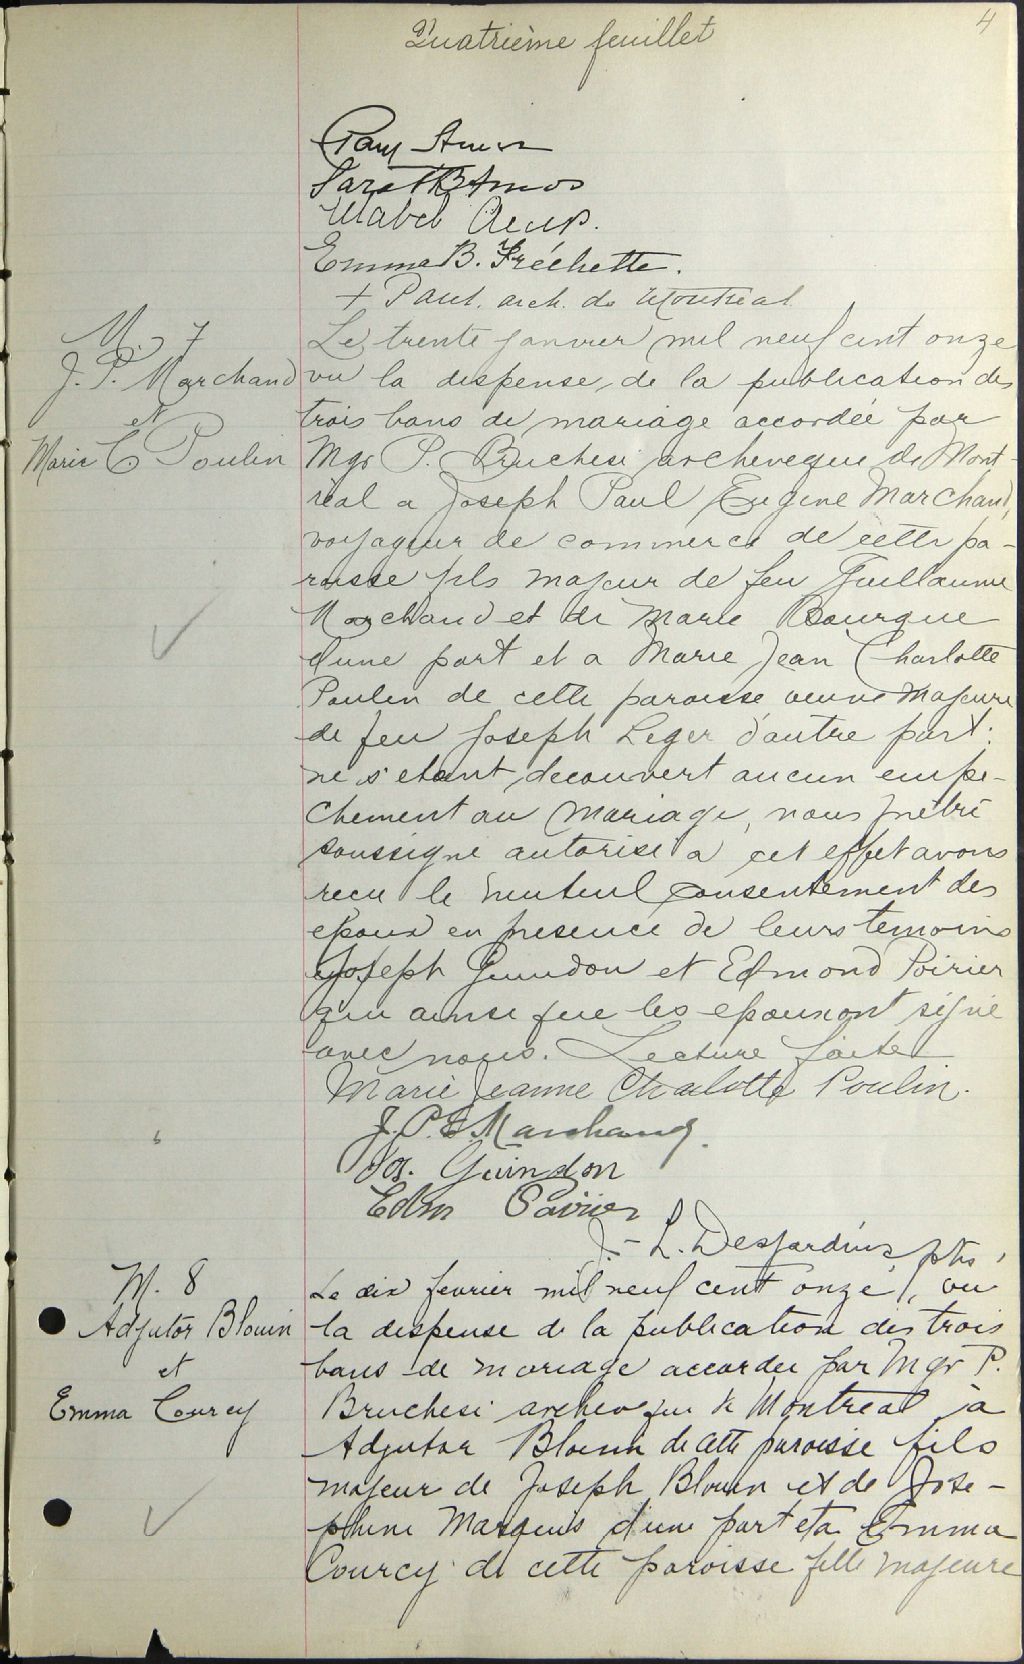 Quatrième feuillet
4
Paul Amos
Sarah B Amos
Mabel
Emma B. Fréchette.
+ Paul. arch. de Montréal
M. 7
J. P. Marchand
et
Marie C Poulin
Le trente janvier mil neuf cent onze
vu la dispense de la publication des
trois bans de mariage accordée par
Mgr P. Bruchesi archeveque de Mont-
real a Joseph Paul Eugene Marchand,
voyageur de commerce de cette pa-
roisse fils majeur de feu Guillaume
Marchand et de Marie Bourque
d'une part et a Marie Jean Charlotte
Poulin de cette paroisse veuve majeure
de feu Joseph Leger d'autre part;
ne s'etant decouvert aucun empe-
chement au mariage, nous prêtre
soussigne autorise a cet effet avons
recu le mutuel consentement des
epoux en presence de leurs temoins
Joseph Guindon et Edmond Poirier
qui ainsi que les epoux ont signé
avec nous. Lecture faite
Marie Jeanne Charlotte Poulin.
J. P. E. Marchand.
Jos. Guindon
Edm Poirier
J.-L. Desjardins ptre
M. 8
Adjutor Blouin
et
Emma Courcy
Le dix fevrier mil neuf cent onze, vu
la dispense de la publication des trois
bans de mariage accordee par Mgr P.
Bruchesi archeveque de Montreal à
Adjutor Blouin de cette paroisse fils
majeur de Joseph Blouin et de Jose-
phine Marquis d'une part et a Emma
Courcy de cette paroisse fille majeure